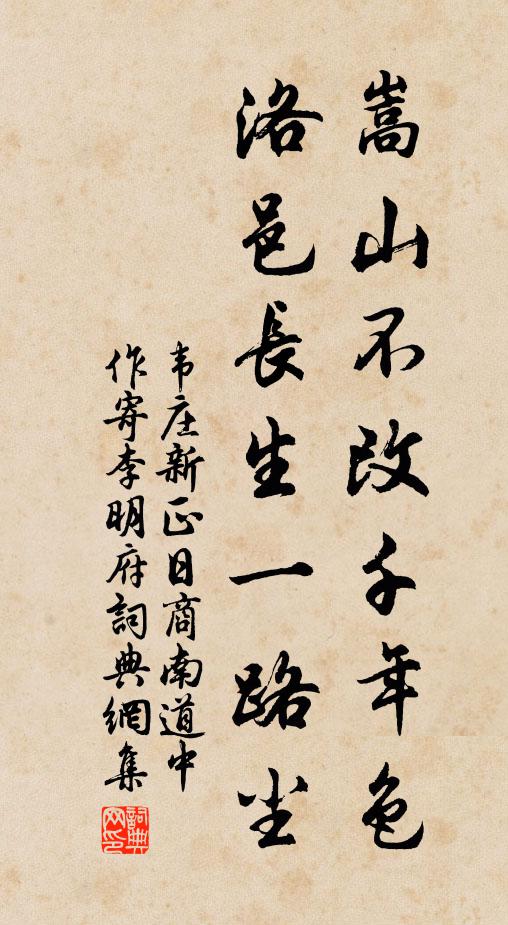 嵩山不改千年色
洛邑長生一路尘
韦庄新正日商南道中
作寄李明府詞典網集
詞典
网印